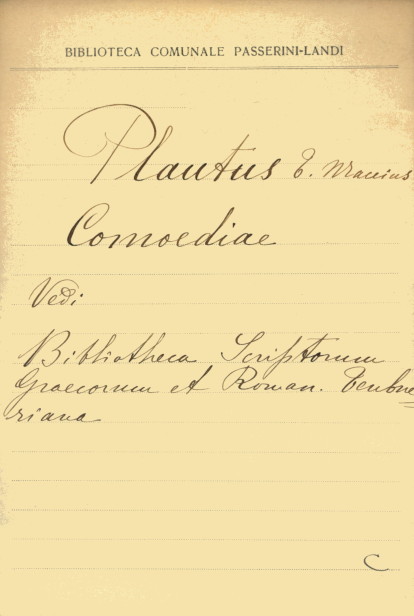 BIBLIOTECA COMUNALE PASSERINI-LANDI
Plautus T. Maccius
Comoediae
Vedi
Bibliotheca Scriptorum
Graecorum et Roman. Teubne=
riana
C